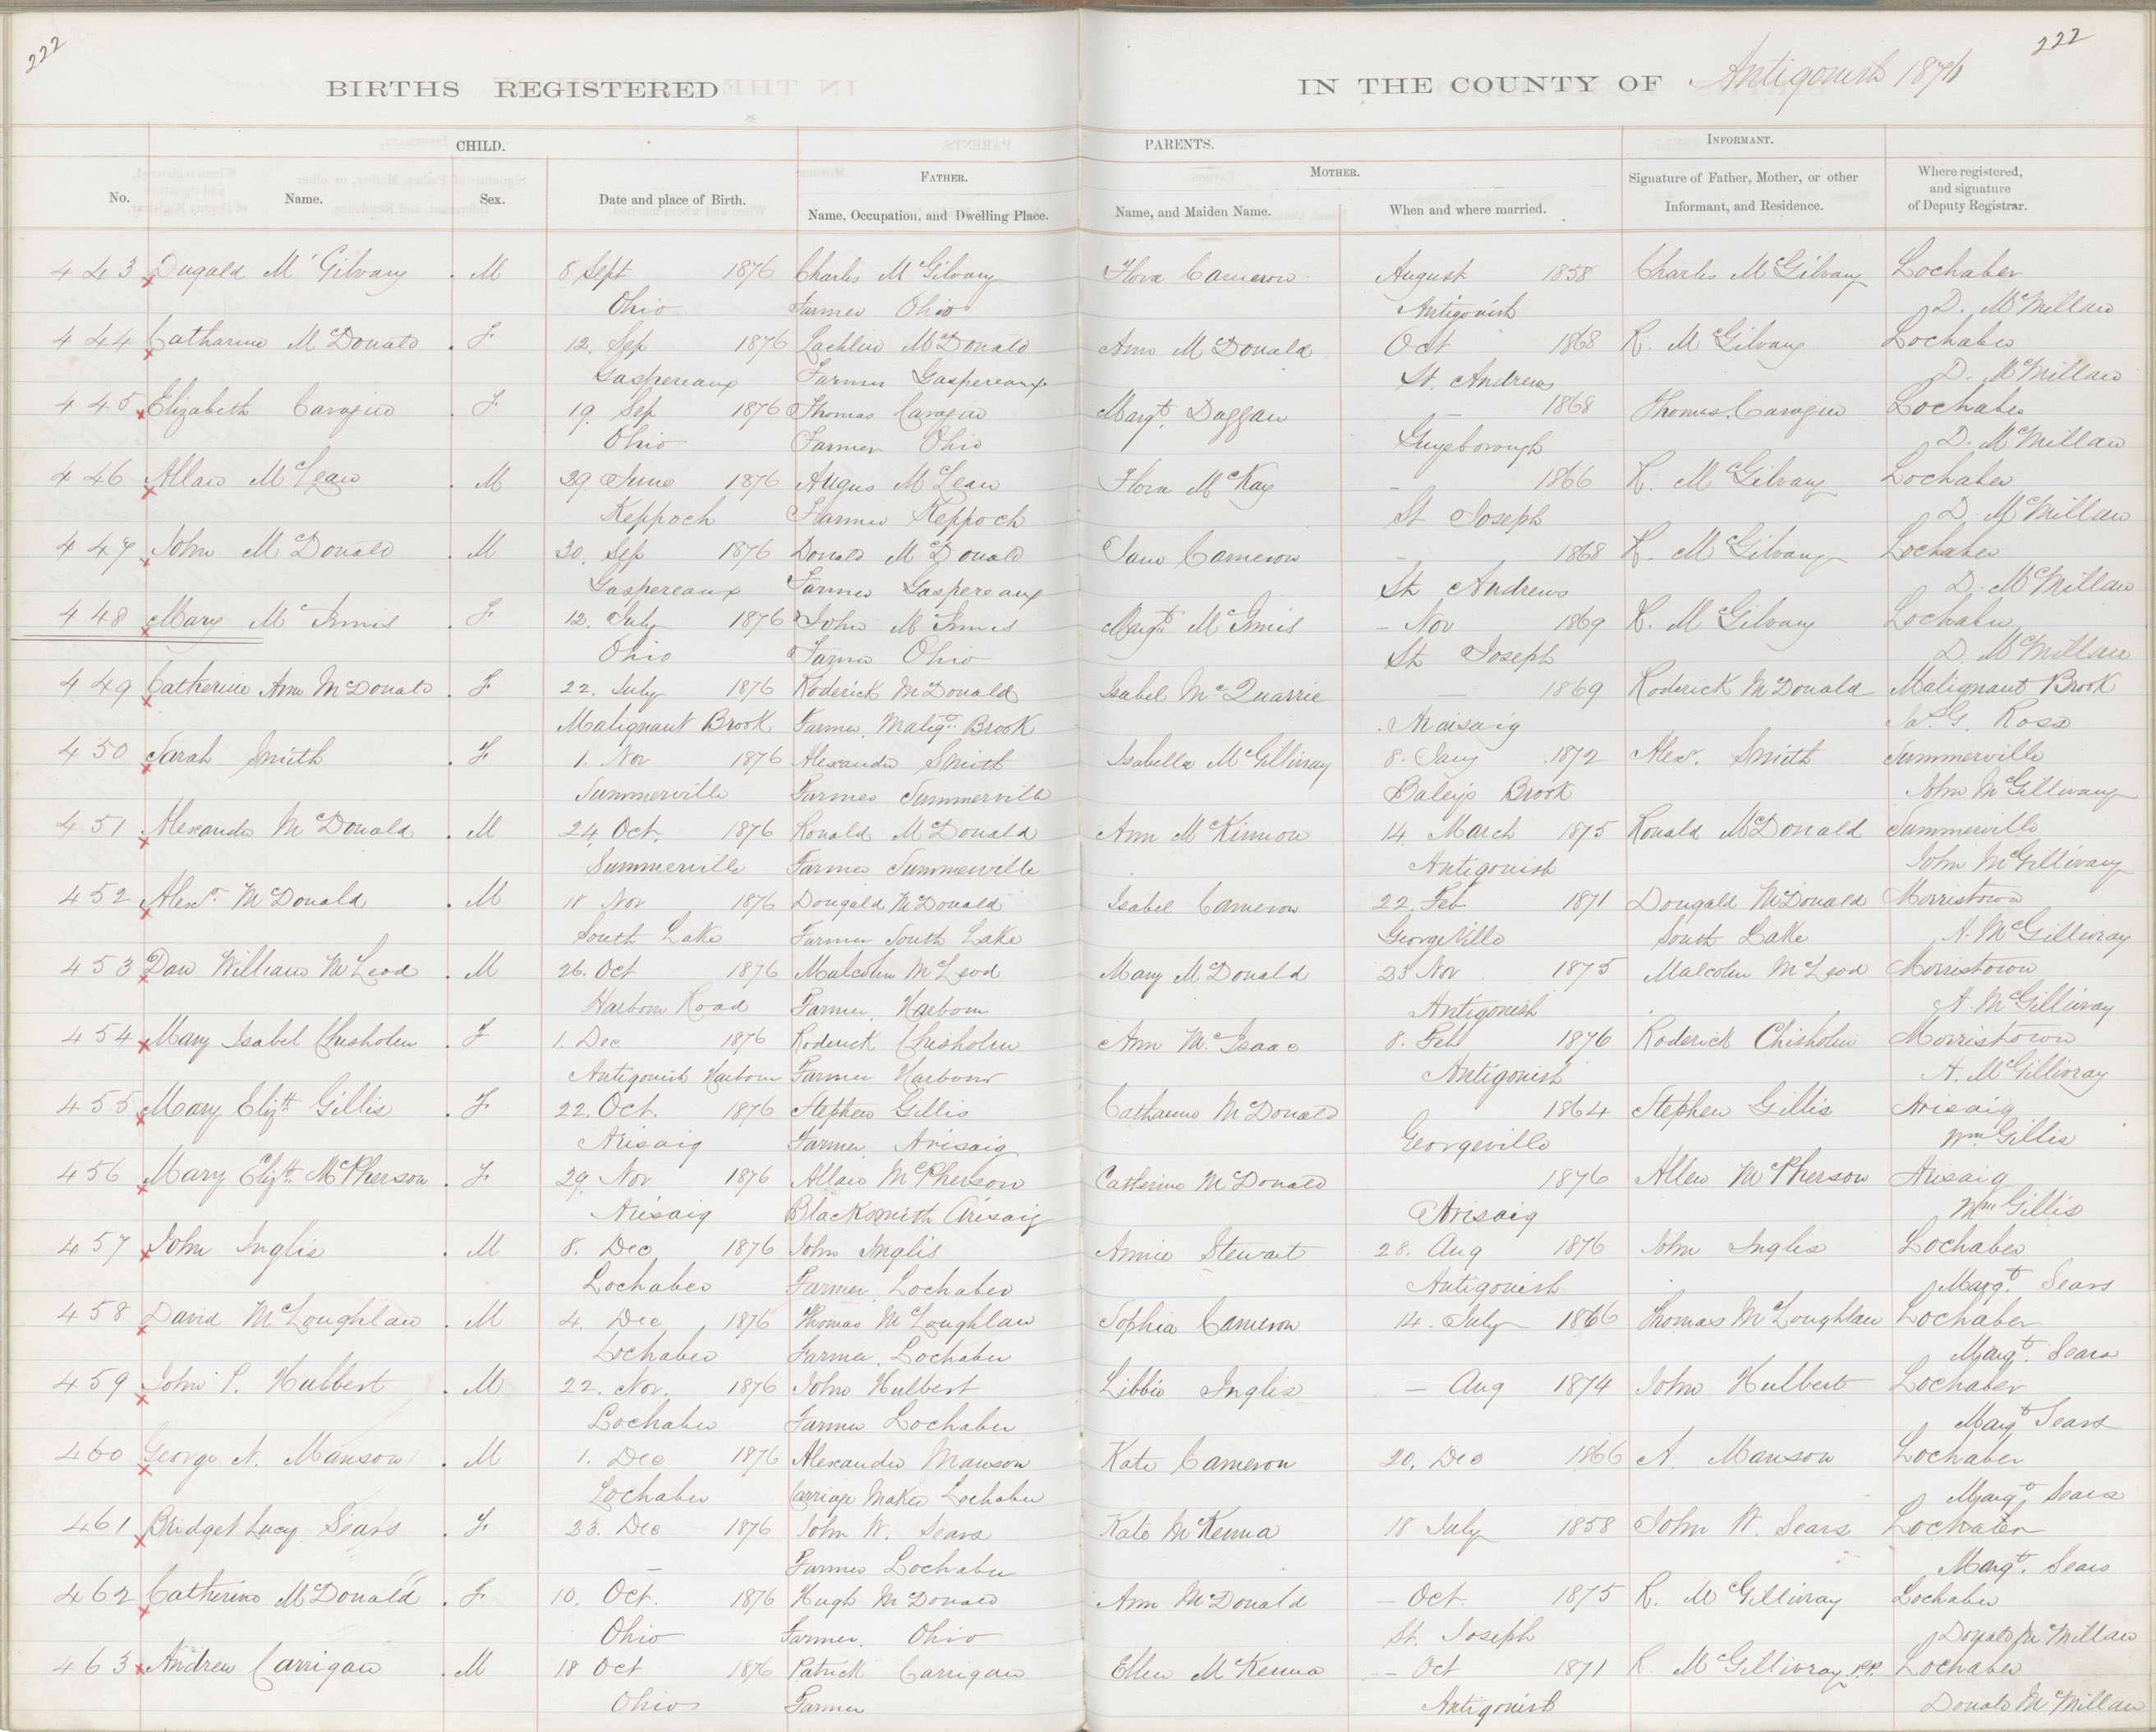 222
222
BIRTHS REGISTERED
IN THE COUNTY OF Antigonish 1876
CHILD.
PARENTS.
INFORMANT.
No.
Name.
Sex.
Date and place of Birth.
FATHER.
Name, Occupation, and Dwelling Place.
MOTHER.
Name, and Maiden Name.
When and where married.
Signature of Father, Mother, or other
Informant, and Residence.
Where registered,
and signature
of Deputy Registrar.
443 Dugald McGilvary . M 8 Sept 1876 Charles McGilvary Flora Cameron August 1858 Charles McGilvary Lochaber
Ohio Farmer Ohio Antigonish D. McMillan
444 Catharine McDonald . F 12. Sep 1876 Lachlin McDonald Ann McDonald Oct 1868 R. McGilvary Lochaber
Gaspereaux Farmer Gaspereaux St. Andrews D. McMillan
445 Elizabeth Caragin . F 19. Sep 1876 Thomas Caragin Margt. Duggan – 1868 Thomas Caragin Lochaber
Ohio Farmer Ohio Guysborough D. McMillan
446 Allan McLean . M 29 June 1876 Angus McLean Flora McKay – 1866 R. McGilvary Lochaber
Keppoch Farmer Keppoch St Joseph D. McMillan
447 John McDonald . M 30. Sep 1876 Donald McDonald Jane Cameron – 1868 R. McGilvary Lochaber
Gaspereaux Farmer Gaspereaux St Andrews D. McMillan
448 Mary McInnis . F 12. July 1876 John McInnis Margt. McInnis – Nov 1869 R. McGilvary Lochaber
Ohio Farmer Ohio St Joseph D. McMillan
449 Catherine Ann McDonald . F 22. July 1876 Roderick McDonald Isabel McQuarrie – 1869 Roderick McDonald Malignant Brook
Malignant Brook Farmer. Maligt. Brook Arisaig Jas. G. Ross
450 Sarah Smith . F 1. Nov 1876 Alexander Smith Isabella McGillivray 8. Jany 1872 Alexr. Smith Summerville
Summerville Farmer Summerville Baleys Brook John McGillivary
451 Alexander McDonald . M 24. Oct. 1876 Ronald McDonald Ann McKinnon 14. March 1875 Ronald McDonald Summerville
Summerville Farmer Summerville Antigonish John McGillivary
452 Alexr. McDonald . M 18 Nov 1876 Dougald McDonald Isabel Cameron 22. Feb 1871 Dougald McDonald Morristown
South Lake Farmer South Lake Georgeville South Lake A. McGillivray
453 Dan William McLeod . M 26. Oct 1876 Malcolm McLeod Mary McDonald 23 Nov 1875 Malcolm McLeod Morristown
Harbour Road Farmer. Harbour Antigonish A. McGillivray
454 Mary Isabel Chisholm . F 1. Dec 1876 Roderick Chisholm Ann McIsaac 8. Feb 1876 Roderick Chisholm Morristown
Antigonish Harbour Farmer Harbour Antigonish A. McGillivray
455 Mary Elizth Gillis . F 22. Oct. 1876 Stephen Gillis Catharine McDonald 1864 Stephen Gillis Arisaig
Arisaig Farmer. Arisaig Georgeville Wm Gillis
456 Mary Elizth McPherson . F 29. Nov 1876 Allan McPherson Catherine McDonald 1876 Allen McPherson Arisaig
Arisaig Blacksmith Arisaig Arisaig Wm Gillis
457 John Inglis . M 8. Dec. 1876 John Inglis Annie Stewart 28. Aug 1876 John Inglis Lochaber
Lochaber Farmer. Lochaber Antigonish Margt. Sears
458 David McLoughlan . M 4. Dec 1876 Thomas McLoughlan Sophia Cameron 14. July 1866 Thomas McLoughlan Lochaber
Lochaber Farmer. Lochaber Margt. Sears
459 John P. Hulbert . M 22. Nov. 1876 John Hulbert Libbie Inglis – Aug 1874 John Hulbert Lochaber
Lochaber Farmer Lochaber Margt Sears
460 George N. Manson . M 1. Dec 1876 Alexander Manson Kate Cameron 20. Dec 1866 A. Manson Lochaber
Lochaber Carriage Maker Lochaber Margt Sears
461 Bridget Lucy Sears . F 23. Dec 1876 John W. Sears Kate McKenna 18 July 1858 John W. Sears Lochaber
– Farmer Lochaber Margt. Sears
462 Catherine McDonald . F 10. Oct. 1876 Hugh McDonald Ann McDonald – Oct. 1875 R. McGillivray Lochaber
Ohio Farmer. Ohio St. Joseph Donald McMillan
463 Andrew Carrigan . M 18 Oct 1876 Patrick Carrigan Ellen McKenna – Oct 1871 R. McGillivray P.P. Lochaber
Ohio Farmer Antigonish Donald McMillan